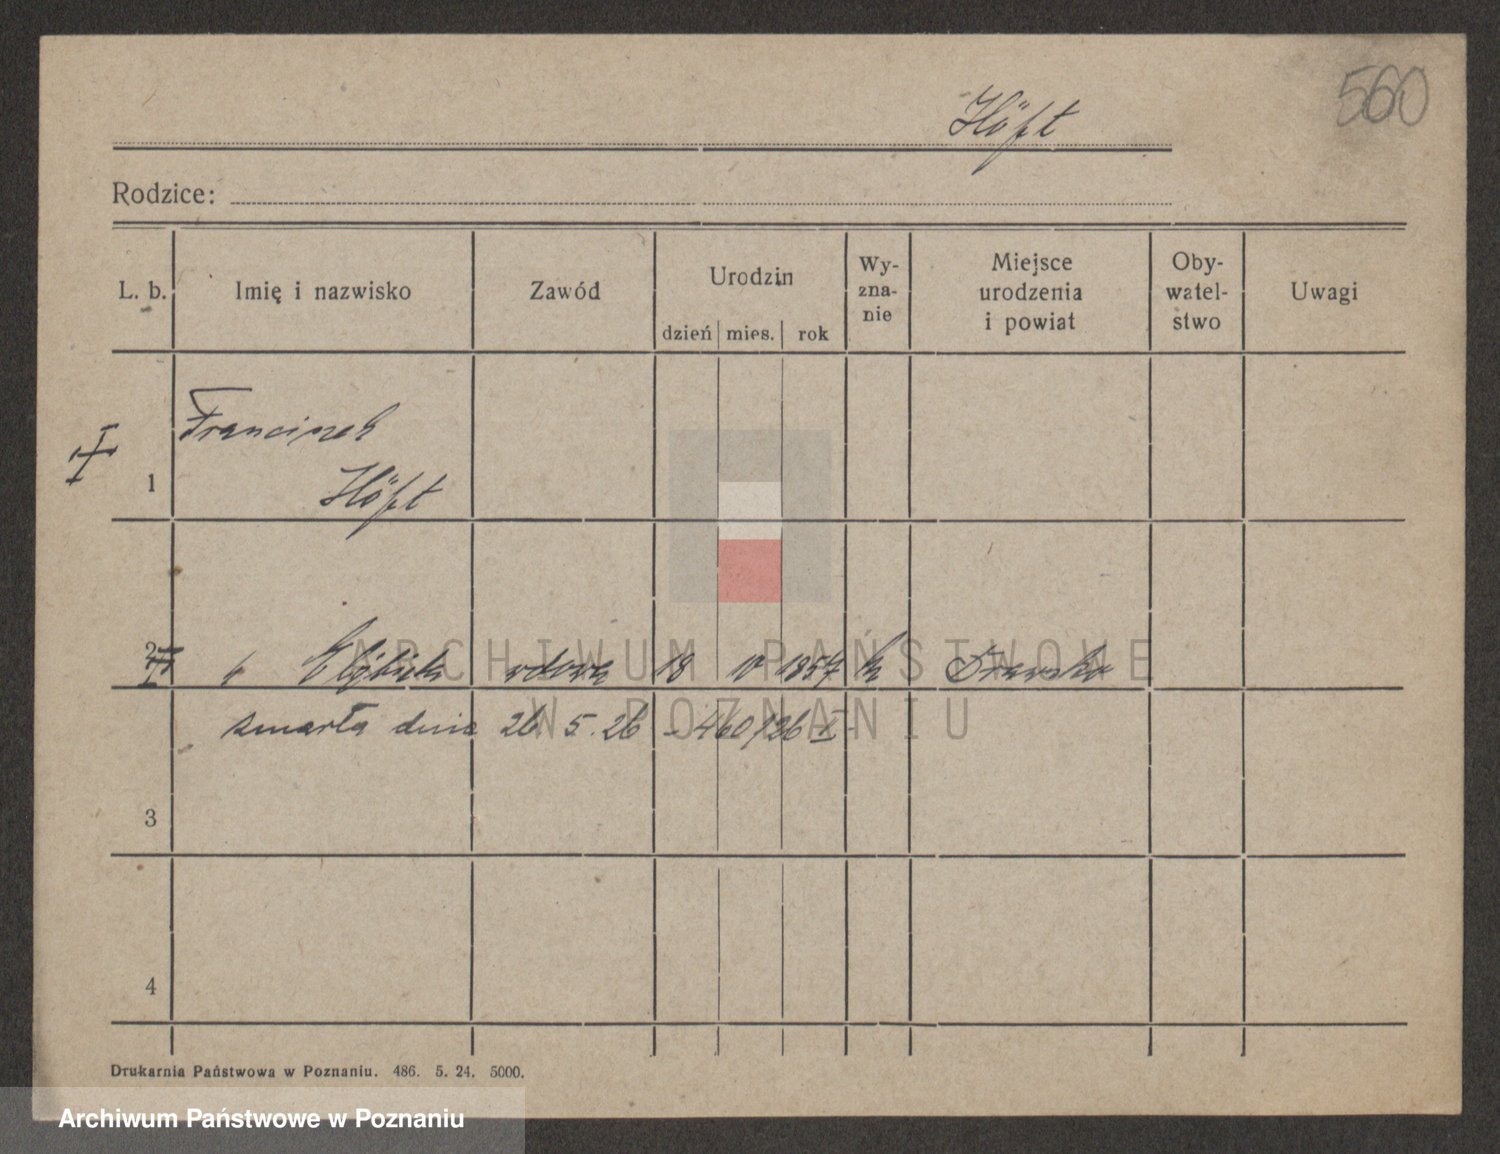 560
Höft
Rodzice:
L. b. Imię i nazwisko Zawód Urodzin Wy-zna-nie Miejsce urodzenia i powiat Oby-watel-stwo Uwagi
dzień mies. rok
Franciszek
1 Höft
2 Elżbieta wdowa 18 1857 k Drawsko
zmarła dnia 26 5. 26 - 460/26 I
3
4
Drukarnia Państwowa w Poznaniu. 486. 5. 24. 5000.
ARCHIWUM PAŃSTWOWE
W POZNANIU
Archiwum Państwowe w Poznaniu